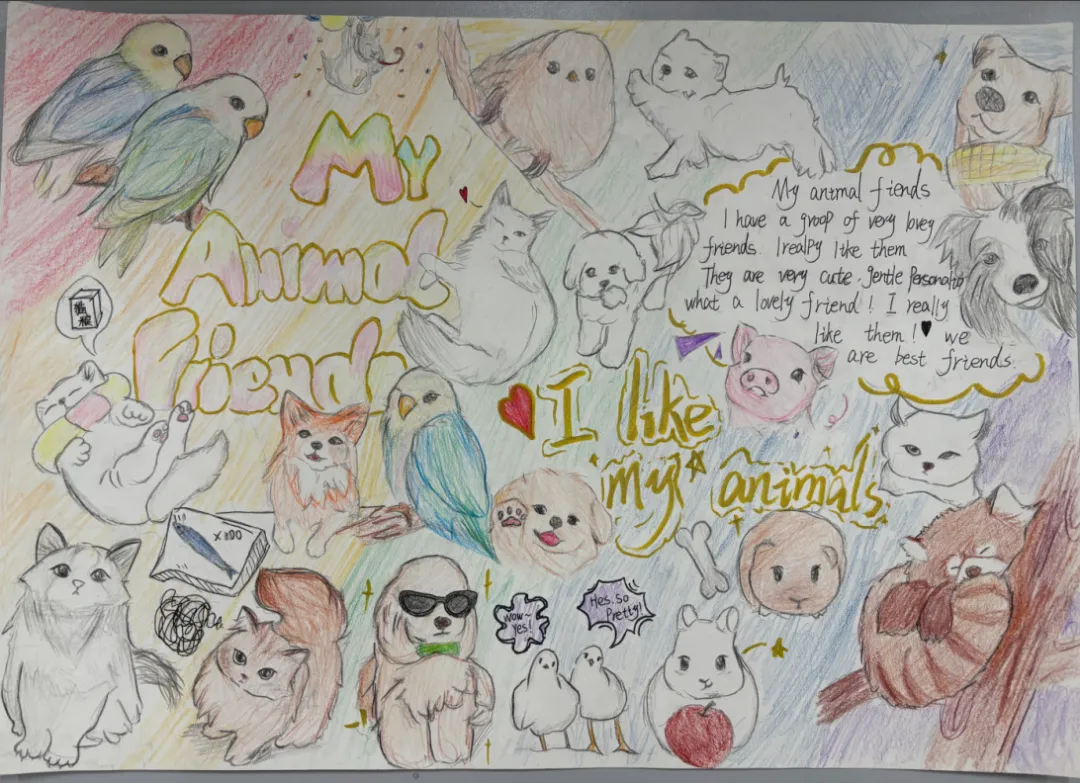 My
Animal
Friends
My animal fiends
I have a groop of very lovey
friends. Irealpy like them
They are very cute. gentle Personality
what a lovely friend! I really
like them! we
are best friends.
I like
my animals
X 100
Wow~
yes!
Hes. So
Pretty!